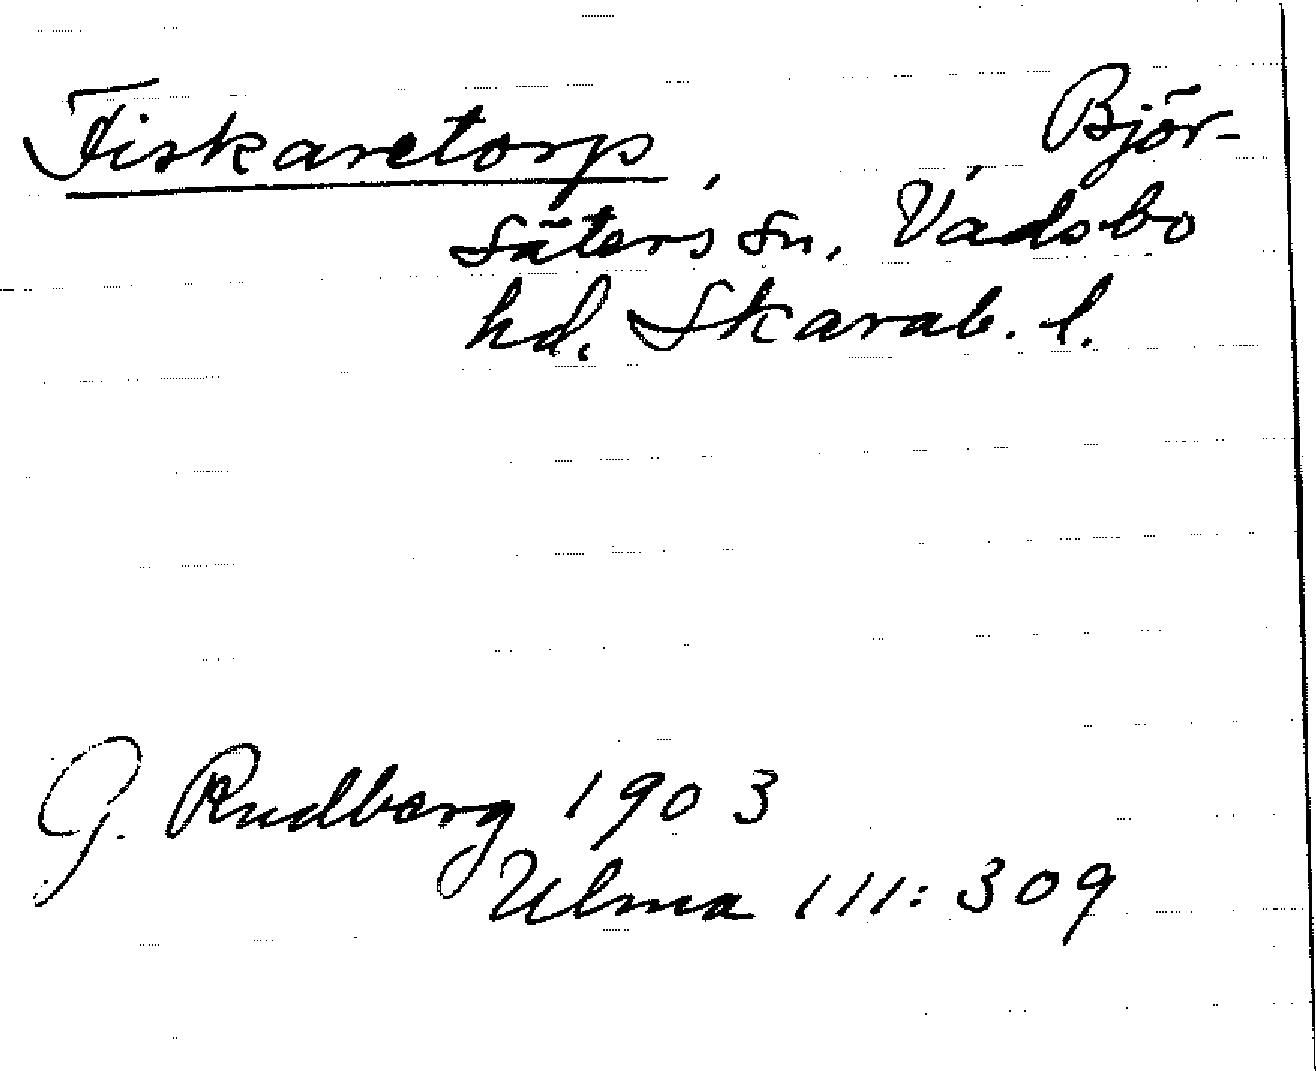 Fiskaretorp, Björ-
säters sn, Vadsbo
hd. Skarab. l.
G. Rudberg 1903
Ulma 111:309